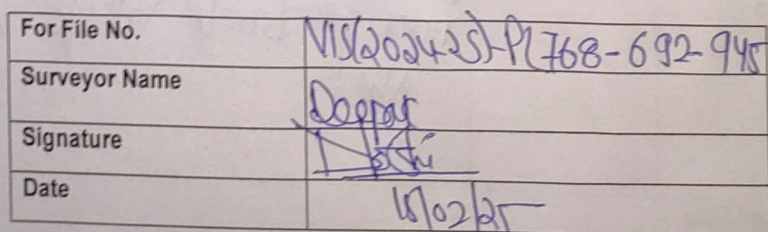 For File No. VIS(2024-25)-PL768-692-945
Surveyor Name
Signature
Date 15/02/25